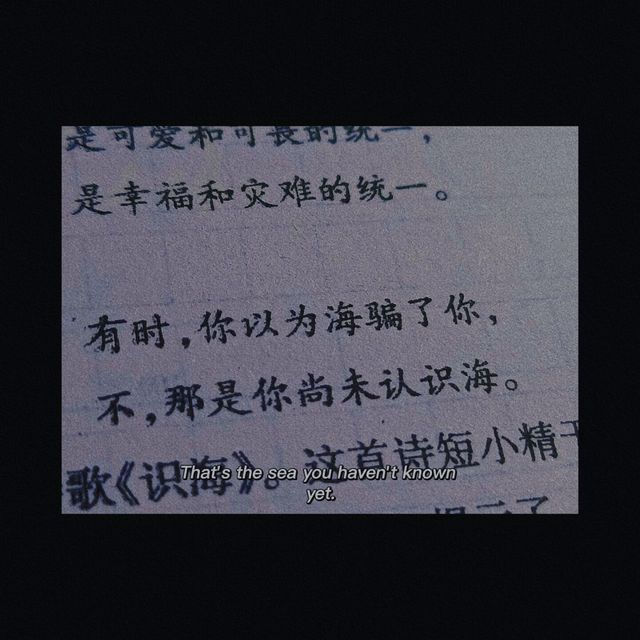 是可爱和可畏的统一，
是幸福和灾难的统一。
有时，你以为海骗了你，
不，那是你尚未认识海。
歌《识海》。这首诗短小精
That's the sea you haven't known
yet.